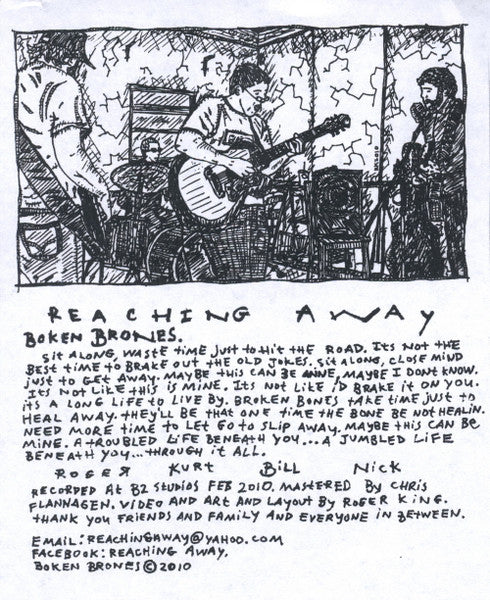 REACHING AWAY
BOKEN BRONES.
Sit ALONG, WASTE time JUST to Hit tHE ROAD. ITS NOt tHE
BEST time tO BRAKE OUT tHE OLD JOKES. Sit ALONG, CLOSE MIND
JUST to GEt AWAY. MAYBE tHIS CAN BE MINE, MAYBE I DONT KNOW.
ITS NOt LIKE tHIS iS MINE. ITS NOt LIKE I'D BRAKE IT ON YOU.
ITS A LONG LIFE tO LIVE BY. BROKEN BONES tAKE tIME JUST to
HEAL AWAY. tHEY'LL BE tHAT ONE tIME tHE BONE BE NOt HEALIN.
NEED MORE time to LET GO tO SLIP AWAY. MAYBE tHIS CAN BE
MINE. A tROUBLED LIFE BENEATH YOU... A JUMBLED LIFE
BENEATH YOU... tHROUGH It ALL.
ROGER KURT BILL NICK
RECORDED At B2 STUDIOS FEB 2010. MASTERED BY CHRIS
FLANNAGEN. VIDEO AND ART AND LAYOUT BY ROGER KING.
tHANK YOU FRIENDS AND FAMILY AND EVERYONE IN BETWEEN.
EMAIL: REACHINGAWAY@YAHOO.COM
FACEBOOK: REACHING AWAY.
BOKEN BRONES © 2010